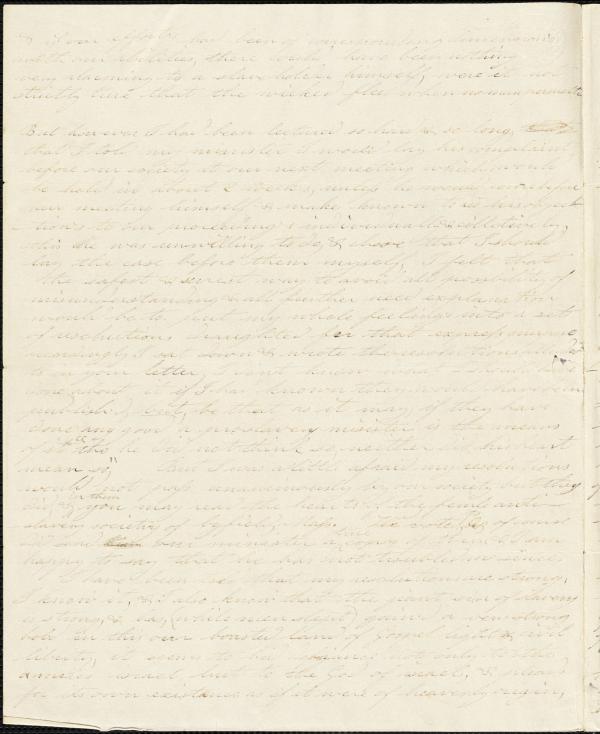 & if our efforts had been of corresponding dimensions
with our abilities, there would have been nothing
very alarming to a slave holder himself, were it not
strictly true that the wicked flee when no man pursueth
But however I had been lectured so hard & so long,
that I told my minister I would lay his complaint
before our society at our next meeting which would
be held in about 2 weeks, unless he would come before
our meeting himself & make known to us his object
-tions to our proceedings individually & collectively,
this he was unwilling to do, & chose that I should
lay the case before them myself, I felt that
the safest & surest way to avoid all possibility of
misunderstanding & all further need explanation
would be to put my whole feelings into a set
of resolutions draughted for that express purpose
accordingly I sat down & wrote the resolutions
to in your letter, I don't know what I should have
done about it if I had known they would have been
published, but, be that as it may, if they have
done any good a proslavery minister is the means
of it "tho he did not think so, neither did his heart
mean so," But I was a little afraid my resolutions
would not pass unanimously by our society but they
did, & in them you may read the hearts of the female anti-
slavery society of Byfield, Mass. of course
our minister a copy of them & I am
happy to say that he has not troubled me since.
I have been told that my resolutions are strong,
I know it, & I also know that the giant sin of slavery
is strong, & has, (while men slept) gained a very strong
hold in this our boasted land of gospel light & civil
liberty, it seems to bid defiance not only to the
armies of Israel but to the God of Israel, & pleads
for its own existence as if it were of heavenly origin,